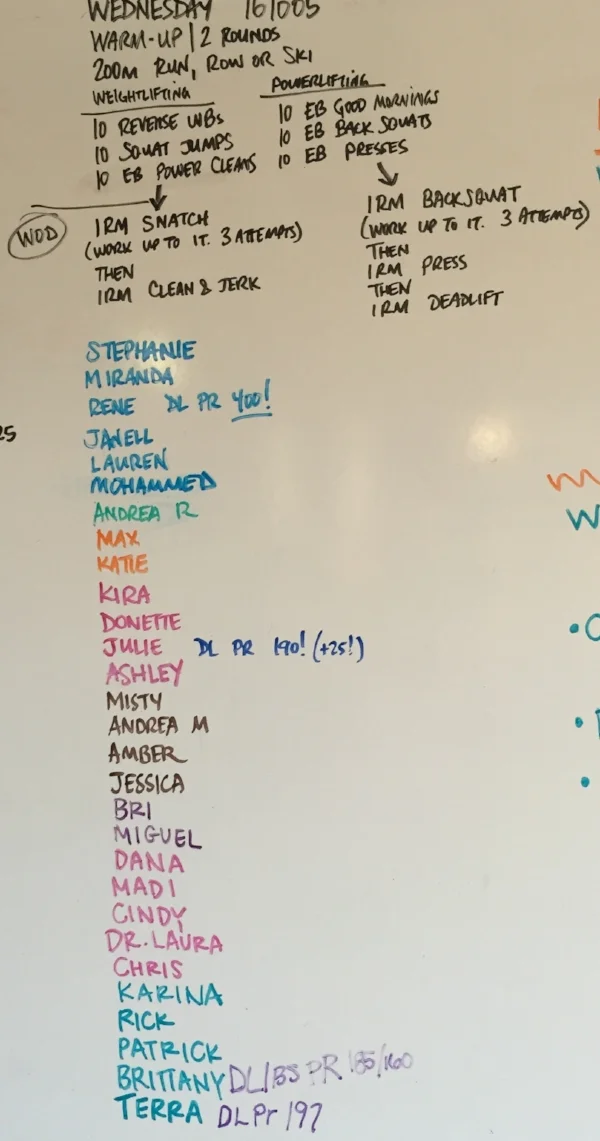 WEDNESDAY 161005
WARM-UP | 2 ROUNDS
200M RUN, ROW OR SKI
WEIGHTLIFTING
10 REVERSE WBS
10 SQUAT JUMPS
10 EB POWER CLEANS
POWERLIFTING
10 EB GOOD MORNINGS
10 EB BACK SQUATS
10 EB PRESSES
WOD
1RM SNATCH
(WORK UP TO IT. 3 ATTEMPTS)
THEN
1RM CLEAN & JERK
1RM BACKSQUAT
(WORK UP TO IT. 3 ATTEMPTS)
THEN
1RM PRESS
THEN
1RM DEADLIFT
STEPHANIE
MIRANDA
RENE DL PR 400!
JANELL
LAUREN
MOHAMMED
ANDREA R
MAX
KATIE
KIRA
DONETTE
JULIE DL PR 190! (+25!)
ASHLEY
MISTY
ANDREA M
AMBER
JESSICA
BRI
MIGUEL
DANA
MADI
CINDY
DR. LAURA
CHRIS
KARINA
RICK
PATRICK
BRITTANY DL/BS PR 185/160
TERRA DL Pr 197